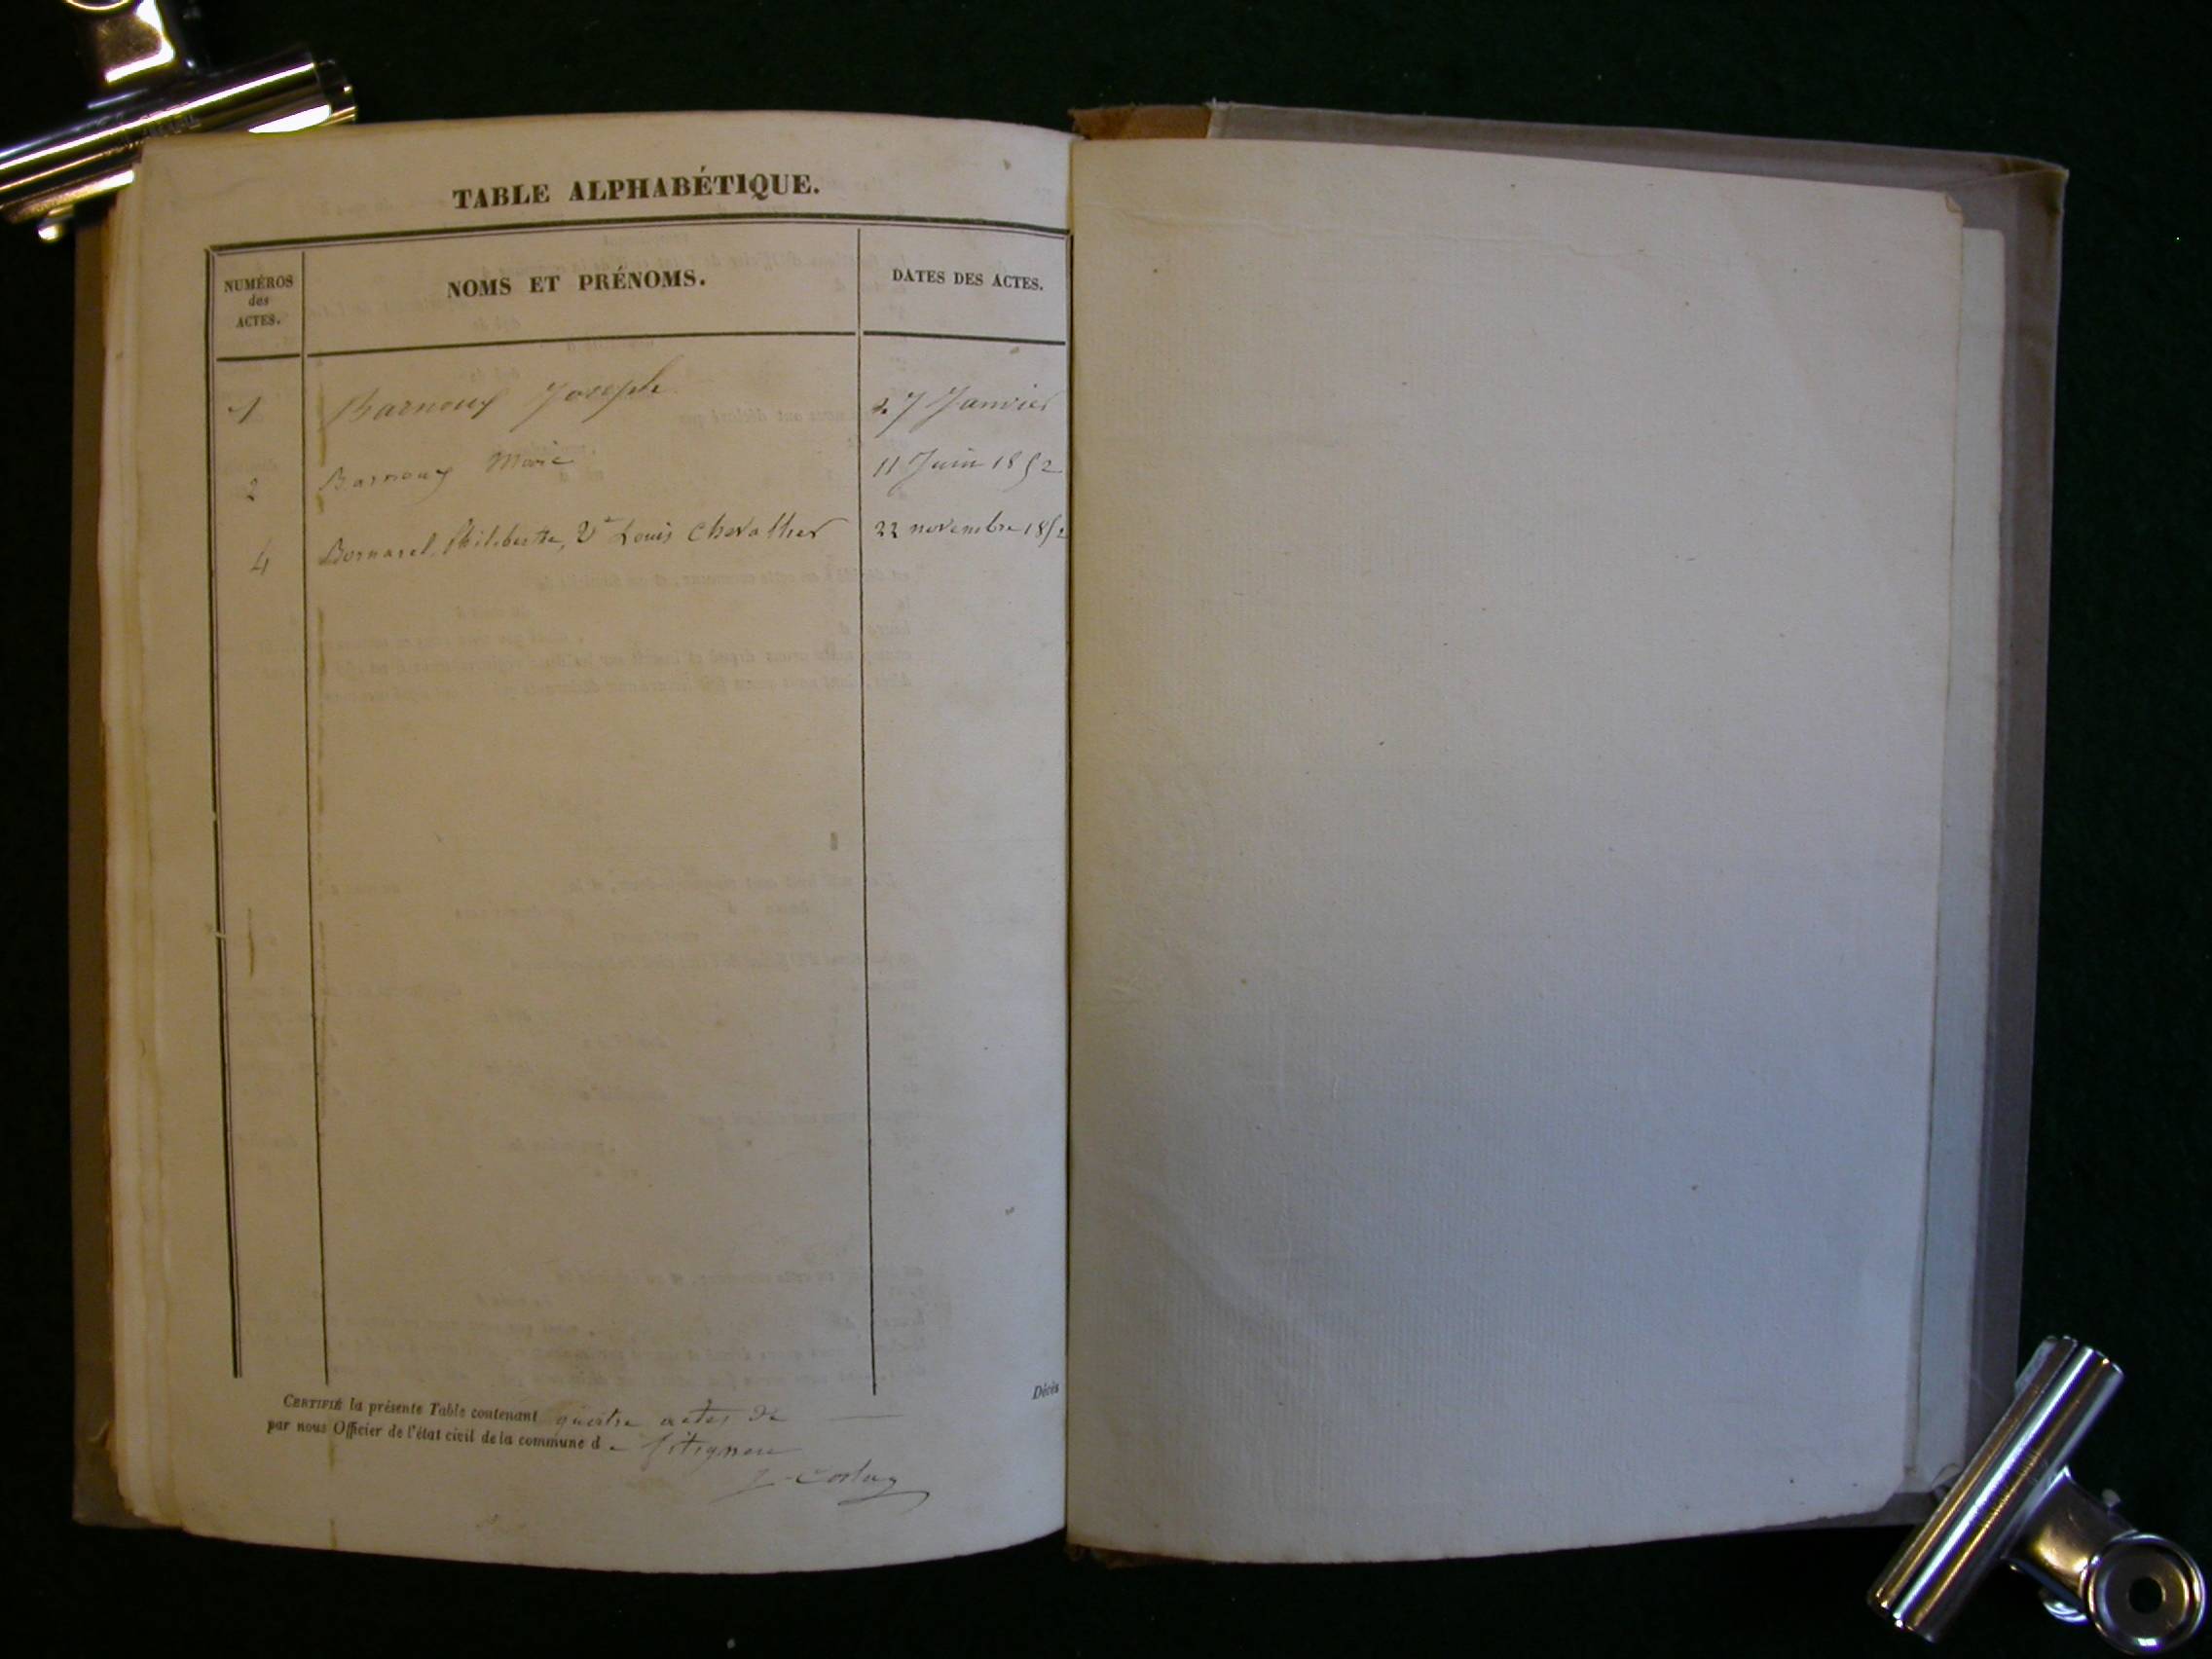 TABLE ALPHABÉTIQUE.
NUMÉROS
des
ACTES.
NOMS ET PRÉNOMS.
DATES DES ACTES.
1 Barnoux Joseph 27 Janvier
2 Barnoux Marie 11 Juin 1852
4 Bornarel Philiberthe, Ve Louis Chevathier 22 novembre 1852
Décès
CERTIFIÉ la présente Table contenant quatre actes de
par nous Officier de l'état civil de la commune de